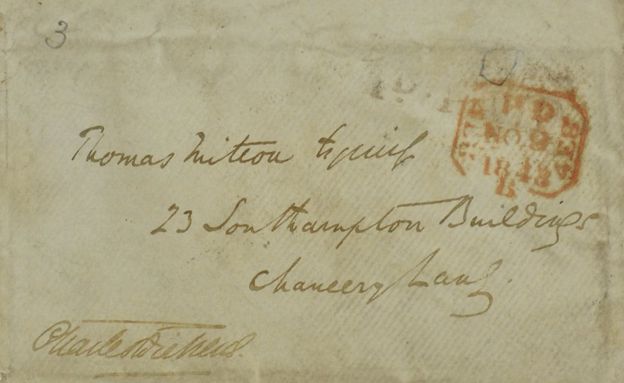 3
Thomas Mitton Esquire
PAID
NO 9
1843
B
23 Southampton Buildings
Chancery Lane
Charles Dickens